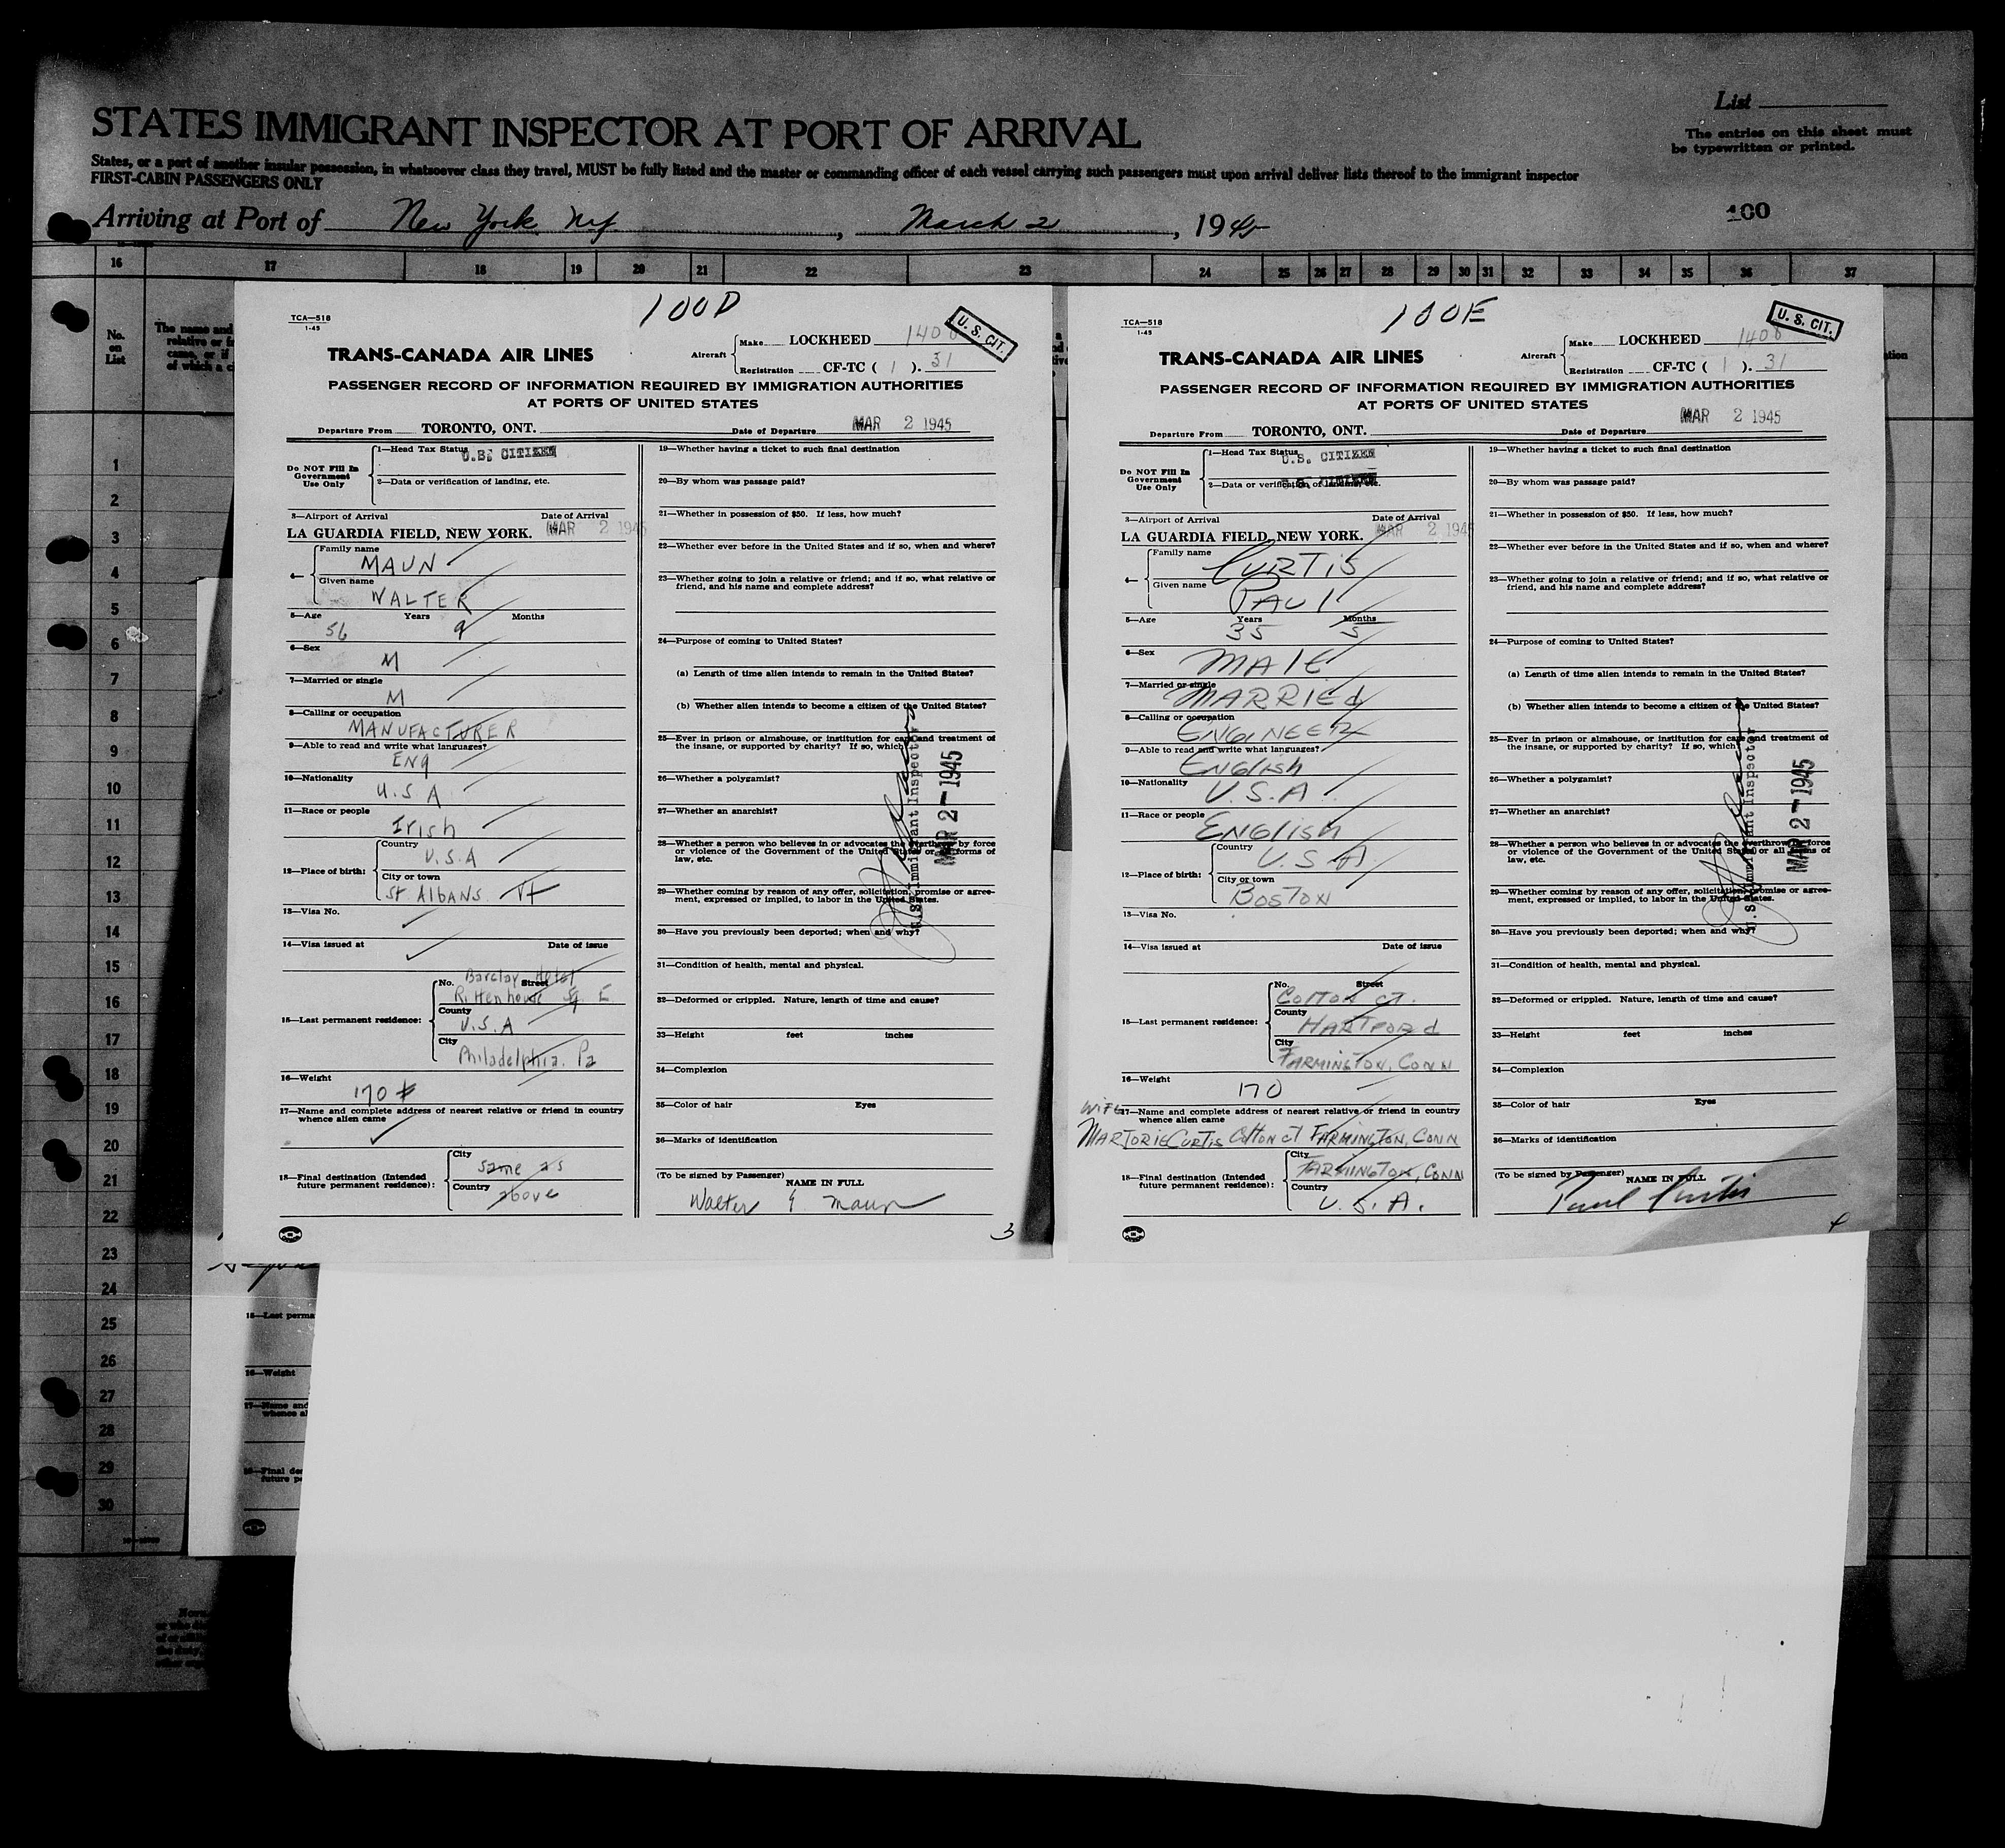 List
STATES IMMIGRANT INSPECTOR AT PORT OF ARRIVAL
The entries on this sheet must
be typewritten or printed.
States, or a port of another insular possession, in whatsoever class they travel, MUST be fully listed and the master or commanding officer of each vessel carrying such passengers must upon arrival deliver lists thereof to the immigrant inspector
FIRST-CABIN PASSENGERS ONLY
Arriving at Port of New York N.Y., March 2, 1945
100
16 17 18 19 20 21 22 23 24 25 26 27 28 29 30 31 32 33 34 35 36 37
No.
on
List
The name and
relative or
came, or if
of which a c
1
2
3
4
5
6
7
8
9
10
11
12
13
14
15
16
17
18
19
20
21
22
23
24
25
26
27
28
29
30
100D
TCA—518
1-45
U. S. CIT.
TRANS-CANADA AIR LINES
Aircraft Make LOCKHEED 1408
Registration CF-TC ( 1 ). 31
PASSENGER RECORD OF INFORMATION REQUIRED BY IMMIGRATION AUTHORITIES
AT PORTS OF UNITED STATES
Departure From TORONTO, ONT. Date of Departure MAR 2 1945
Do NOT Fill In
Government
Use Only
1—Head Tax Status U.S. CITIZEN
2—Data or verification of landing, etc.
3—Airport of Arrival Date of Arrival
LA GUARDIA FIELD, NEW YORK. MAR 2 1945
4— Family name
MAUN
Given name
WALTER
5—Age Years Months
56 9
6—Sex
M
7—Married or single
M
8—Calling or occupation
MANUFACTURER
9—Able to read and write what languages?
ENG
10—Nationality
U.S.A
11—Race or people
Irish
12—Place of birth: Country
U.S.A
City or town
St ALBANS Vt
13—Visa No.
14—Visa issued at Date of issue
15—Last permanent residence: No. Street
Barclay Hotel
Rittenhouse Sq. E
County
U.S.A
City
Philadelphia. Pa
16—Weight
170 #
17—Name and complete address of nearest relative or friend in country
whence alien came
18—Final destination (Intended
future permanent residence): City
same as
Country
above
19—Whether having a ticket to such final destination
20—By whom was passage paid?
21—Whether in possession of $50. If less, how much?
22—Whether ever before in the United States and if so, when and where?
23—Whether going to join a relative or friend; and if so, what relative or
friend, and his name and complete address?
24—Purpose of coming to United States?
(a) Length of time alien intends to remain in the United States?
(b) Whether alien intends to become a citizen of the United States?
25—Ever in prison or almshouse, or institution for care and treatment of
the insane, or supported by charity? If so, which
26—Whether a polygamist?
27—Whether an anarchist?
28—Whether a person who believes in or advocates the overthrow by force
or violence of the Government of the United States or all forms of
law, etc.
29—Whether coming by reason of any offer, solicitation, promise or agree-
ment, expressed or implied, to labor in the United States.
30—Have you previously been deported; when and why?
31—Condition of health, mental and physical.
32—Deformed or crippled. Nature, length of time and cause?
33—Height feet inches
34—Complexion
35—Color of hair Eyes
36—Marks of identification
(To be signed by Passenger)
NAME IN FULL
Walter G. Maun
U.S. Immigrant Inspector
MAR 2 - 1945
3
100E
TCA—518
1-45
U. S. CIT.
TRANS-CANADA AIR LINES
Aircraft Make LOCKHEED 1408
Registration CF-TC ( 1 ). 31
PASSENGER RECORD OF INFORMATION REQUIRED BY IMMIGRATION AUTHORITIES
AT PORTS OF UNITED STATES
Departure From TORONTO, ONT. Date of Departure MAR 2 1945
Do NOT Fill In
Government
Use Only
1—Head Tax Status U.S. CITIZEN
2—Data or verification of landing, etc. U.S. CITIZEN
3—Airport of Arrival Date of Arrival
LA GUARDIA FIELD, NEW YORK. MAR 2 194
4— Family name
CURTIS
Given name
PAUL
5—Age Years Months
35 5
6—Sex
MALE
7—Married or single
MARRIEd
8—Calling or occupation
ENGINEER
9—Able to read and write what languages?
ENGlish
10—Nationality
U.S.A.
11—Race or people
ENGlish
12—Place of birth: Country
U.S.A.
City or town
BOSTON
13—Visa No.
14—Visa issued at Date of issue
15—Last permanent residence: No. Street
COTTON CT.
County
HARTFORd
City
FARMINGTON, CONN
16—Weight
170
WIFE
17—Name and complete address of nearest relative or friend in country
whence alien came
MARJORIE CURTIS Cotton CT FARMINGTON, CONN
18—Final destination (Intended
future permanent residence): City
FARMINGTON, CONN
Country
U.S.A.
19—Whether having a ticket to such final destination
20—By whom was passage paid?
21—Whether in possession of $50. If less, how much?
22—Whether ever before in the United States and if so, when and where?
23—Whether going to join a relative or friend; and if so, what relative or
friend, and his name and complete address?
24—Purpose of coming to United States?
(a) Length of time alien intends to remain in the United States?
(b) Whether alien intends to become a citizen of the United States?
25—Ever in prison or almshouse, or institution for care and treatment of
the insane, or supported by charity? If so, which
26—Whether a polygamist?
27—Whether an anarchist?
28—Whether a person who believes in or advocates the overthrow by force
or violence of the Government of the United States or all forms of
law, etc.
29—Whether coming by reason of any offer, solicitation, promise or agree-
ment, expressed or implied, to labor in the United States.
30—Have you previously been deported; when and why?
31—Condition of health, mental and physical.
32—Deformed or crippled. Nature, length of time and cause?
33—Height feet inches
34—Complexion
35—Color of hair Eyes
36—Marks of identification
(To be signed by Passenger)
NAME IN FULL
Paul Curtis
U.S. Immigrant Inspector
MAR 2 - 1945
4
15—Last perma
16—Weight
17—Name and
whence al
18—Final des
future p